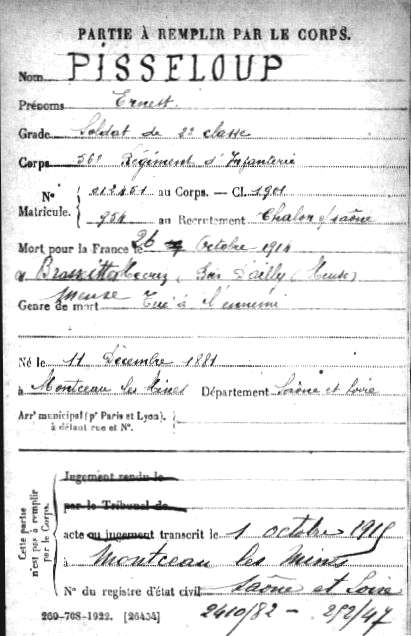 PARTIE À REMPLIR PAR LE CORPS.
Nom PISSELOUP
Prénoms Ernest
Grade Soldat de 2e classe
Corps 56e Régiment d'Infanterie
No 012451 au Corps. — Cl. 1901
Matricule. 954 au Recrutement Chalon s/saône
Mort pour la France le 26 Octobre 1914
à Bois d'Ailly (Meuse)
Meuse
Genre de mort Tué à l'ennemi
Né le 11 Décembre 1881
à Montceau les Mines Département Saône et Loire
Arrt municipal (pr Paris et Lyon), à défaut rue et No.
Cette partie n'est pas à remplir par le Corps.
Jugement rendu le
par le Tribunal de
acte ou jugement transcrit le 1 octobre 1915
à Montceau les Mines
Saône et Loire
No du registre d'état civil
2410/82 - 252/47
269-708-1922. [26434]